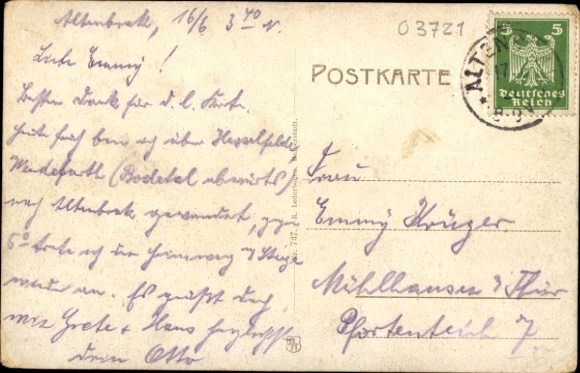 Altenbrak, 16/6 3 40 N.
03721
Liebe Emmy!
Besten Dank für d. l. Karte.
Heute früh bin ich über Hasselfelde
Wendefurth (Bodetal abwärts)
nach Altenbrak gewandert, gegen
5° trete ich den Heimweg
wieder an. Es grüßt Dich
mit Grete + Hans herzlichst
Dein Otto
POSTKARTE
5 5
Deutsches
Reich
ALTEN
Frau
Emmy Krüger
Mühlhausen i/Thür
Pfortenteich 7.